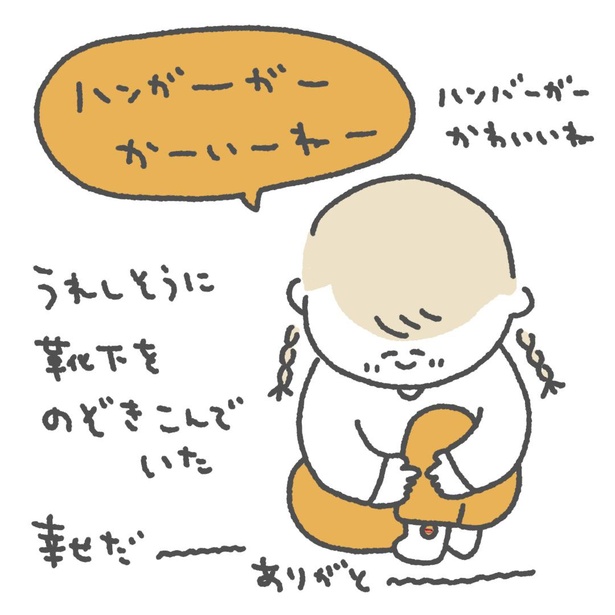 ハンガーガー
かーいーねー
ハンバーガー
かわいいね
うれしそうに
靴下を
のぞきこんで
いた
幸せだ〜
ありがと〜